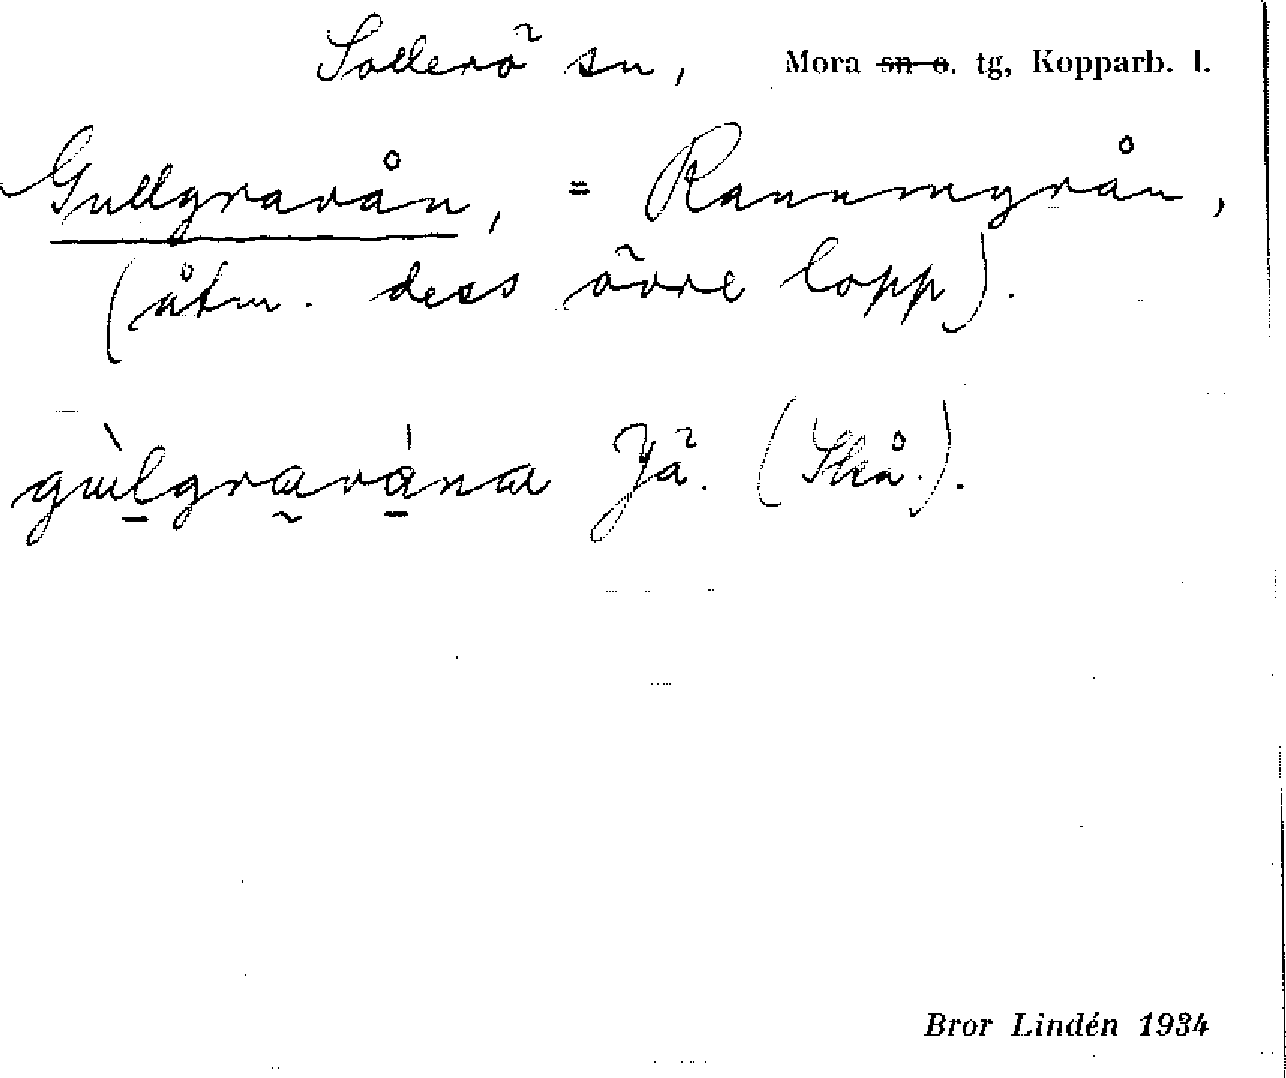 Sollerö sn, Mora sn o. tg, Kopparb. l.
Gullgravån, = Rannmyrån,
(åtm. dess övre lopp).
gùlgravána Jä. (Skå.).
Bror Lindén 1934